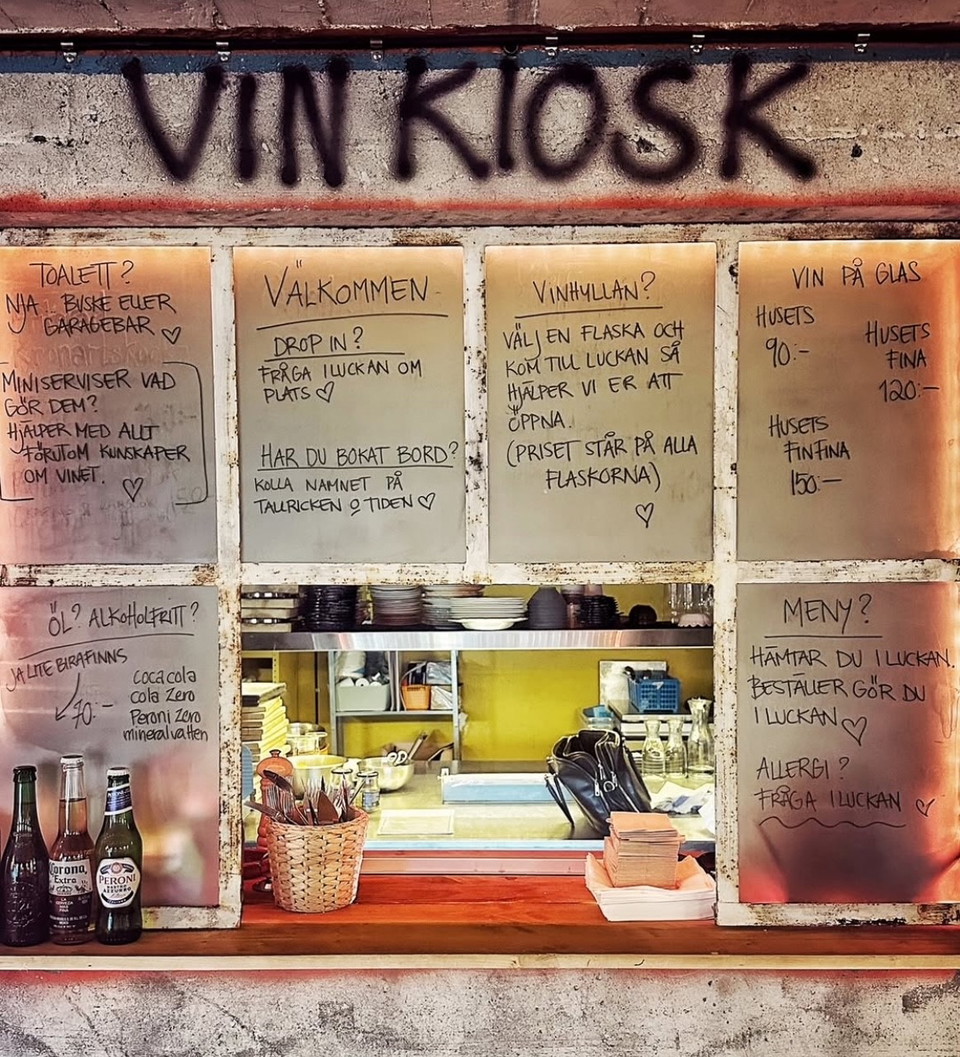 VIN KIOSK
TOALETT?
NJA.. BUSKE ELLER
GARAGEBAR ♡
MINISERVISER VAD
GÖR DEM?
HJÄLPER MED ALLT
FÖRUTOM KUNSKAPER
OM VINET.
♡
VÄLKOMMEN
DROP IN?
FRÅGA I LUCKAN OM
PLATS ♡
HAR DU BOKAT BORD?
KOLLA NAMNET PÅ
TALLRICKEN O TIDEN ♡
VINHYLLAN?
VÄLJ EN FLASKA OCH
KOM TILL LUCKAN SÅ
HJÄLPER VI ER ATT
ÖPPNA.
(PRISET STÅR PÅ ALLA
FLASKORNA)
♡
VIN PÅ GLAS
HUSETS
90:-
HUSETS
FINA
120:-
HUSETS
FINFINA
150:-
ÖL? ALKOHOLFRITT?
JA LITE BIRA FINNS
70:-
coca cola
cola Zero
Peroni Zero
mineralvatten
MENY?
HÄMTAR DU I LUCKAN.
BESTÄLLER GÖR DU
I LUCKAN ♡
ALLERGI?
FRÅGA I LUCKAN ♡
Corona
Extra
PERONI
NASTRO AZZURRO